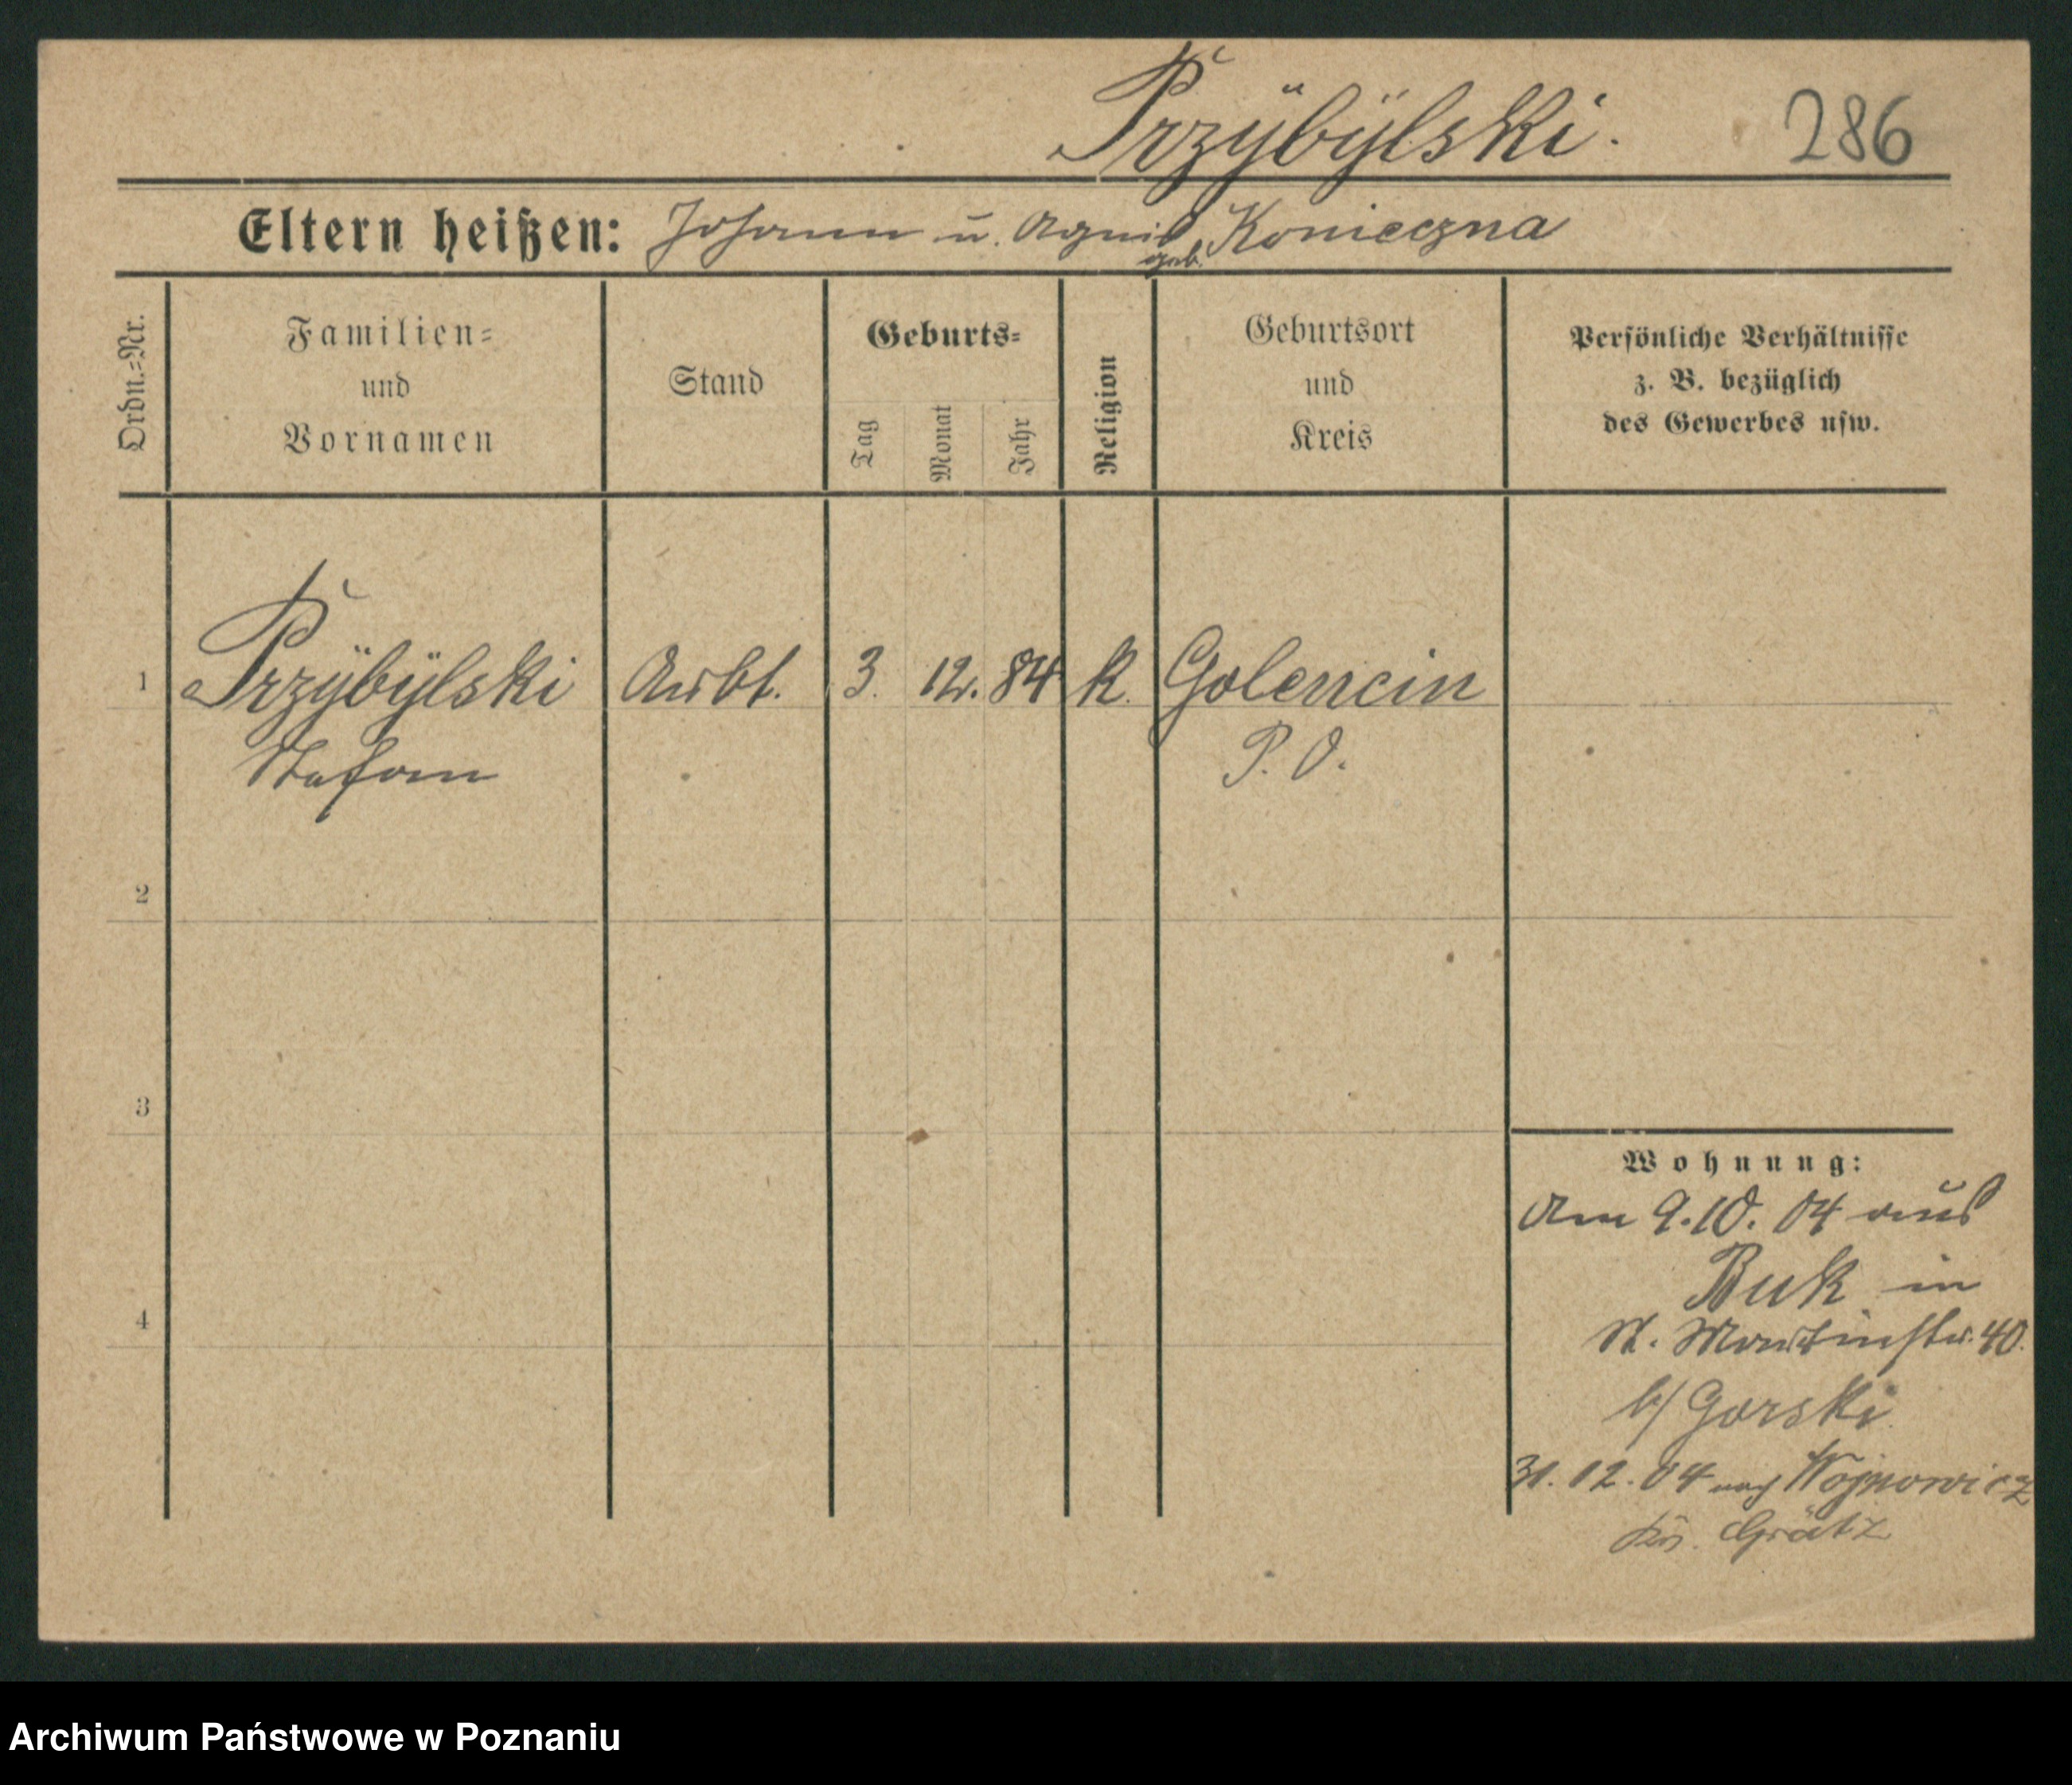 Przÿbÿlski.
286
Eltern heißen: Johann u. Agnes geb. Konieczna
Ordn.-Nr.
Familien-
und
Vornamen
Stand
Geburts-
Tag
Monat
Jahr
Religion
Geburtsort
und
Kreis
Persönliche Verhältnisse
z. B. bezüglich
des Gewerbes usw.
1 Przÿbÿlski Arbt. 3. 12. 84 k. Golencin
Stefan P. O.
2
3
4
Wohnung:
Am 9.10. 04 aus
Buk in
St. Martinstr. 40.
b/ Gorski
31. 12. 04 nach Wojnowicz
Grätz
Archiwum Państwowe w Poznaniu